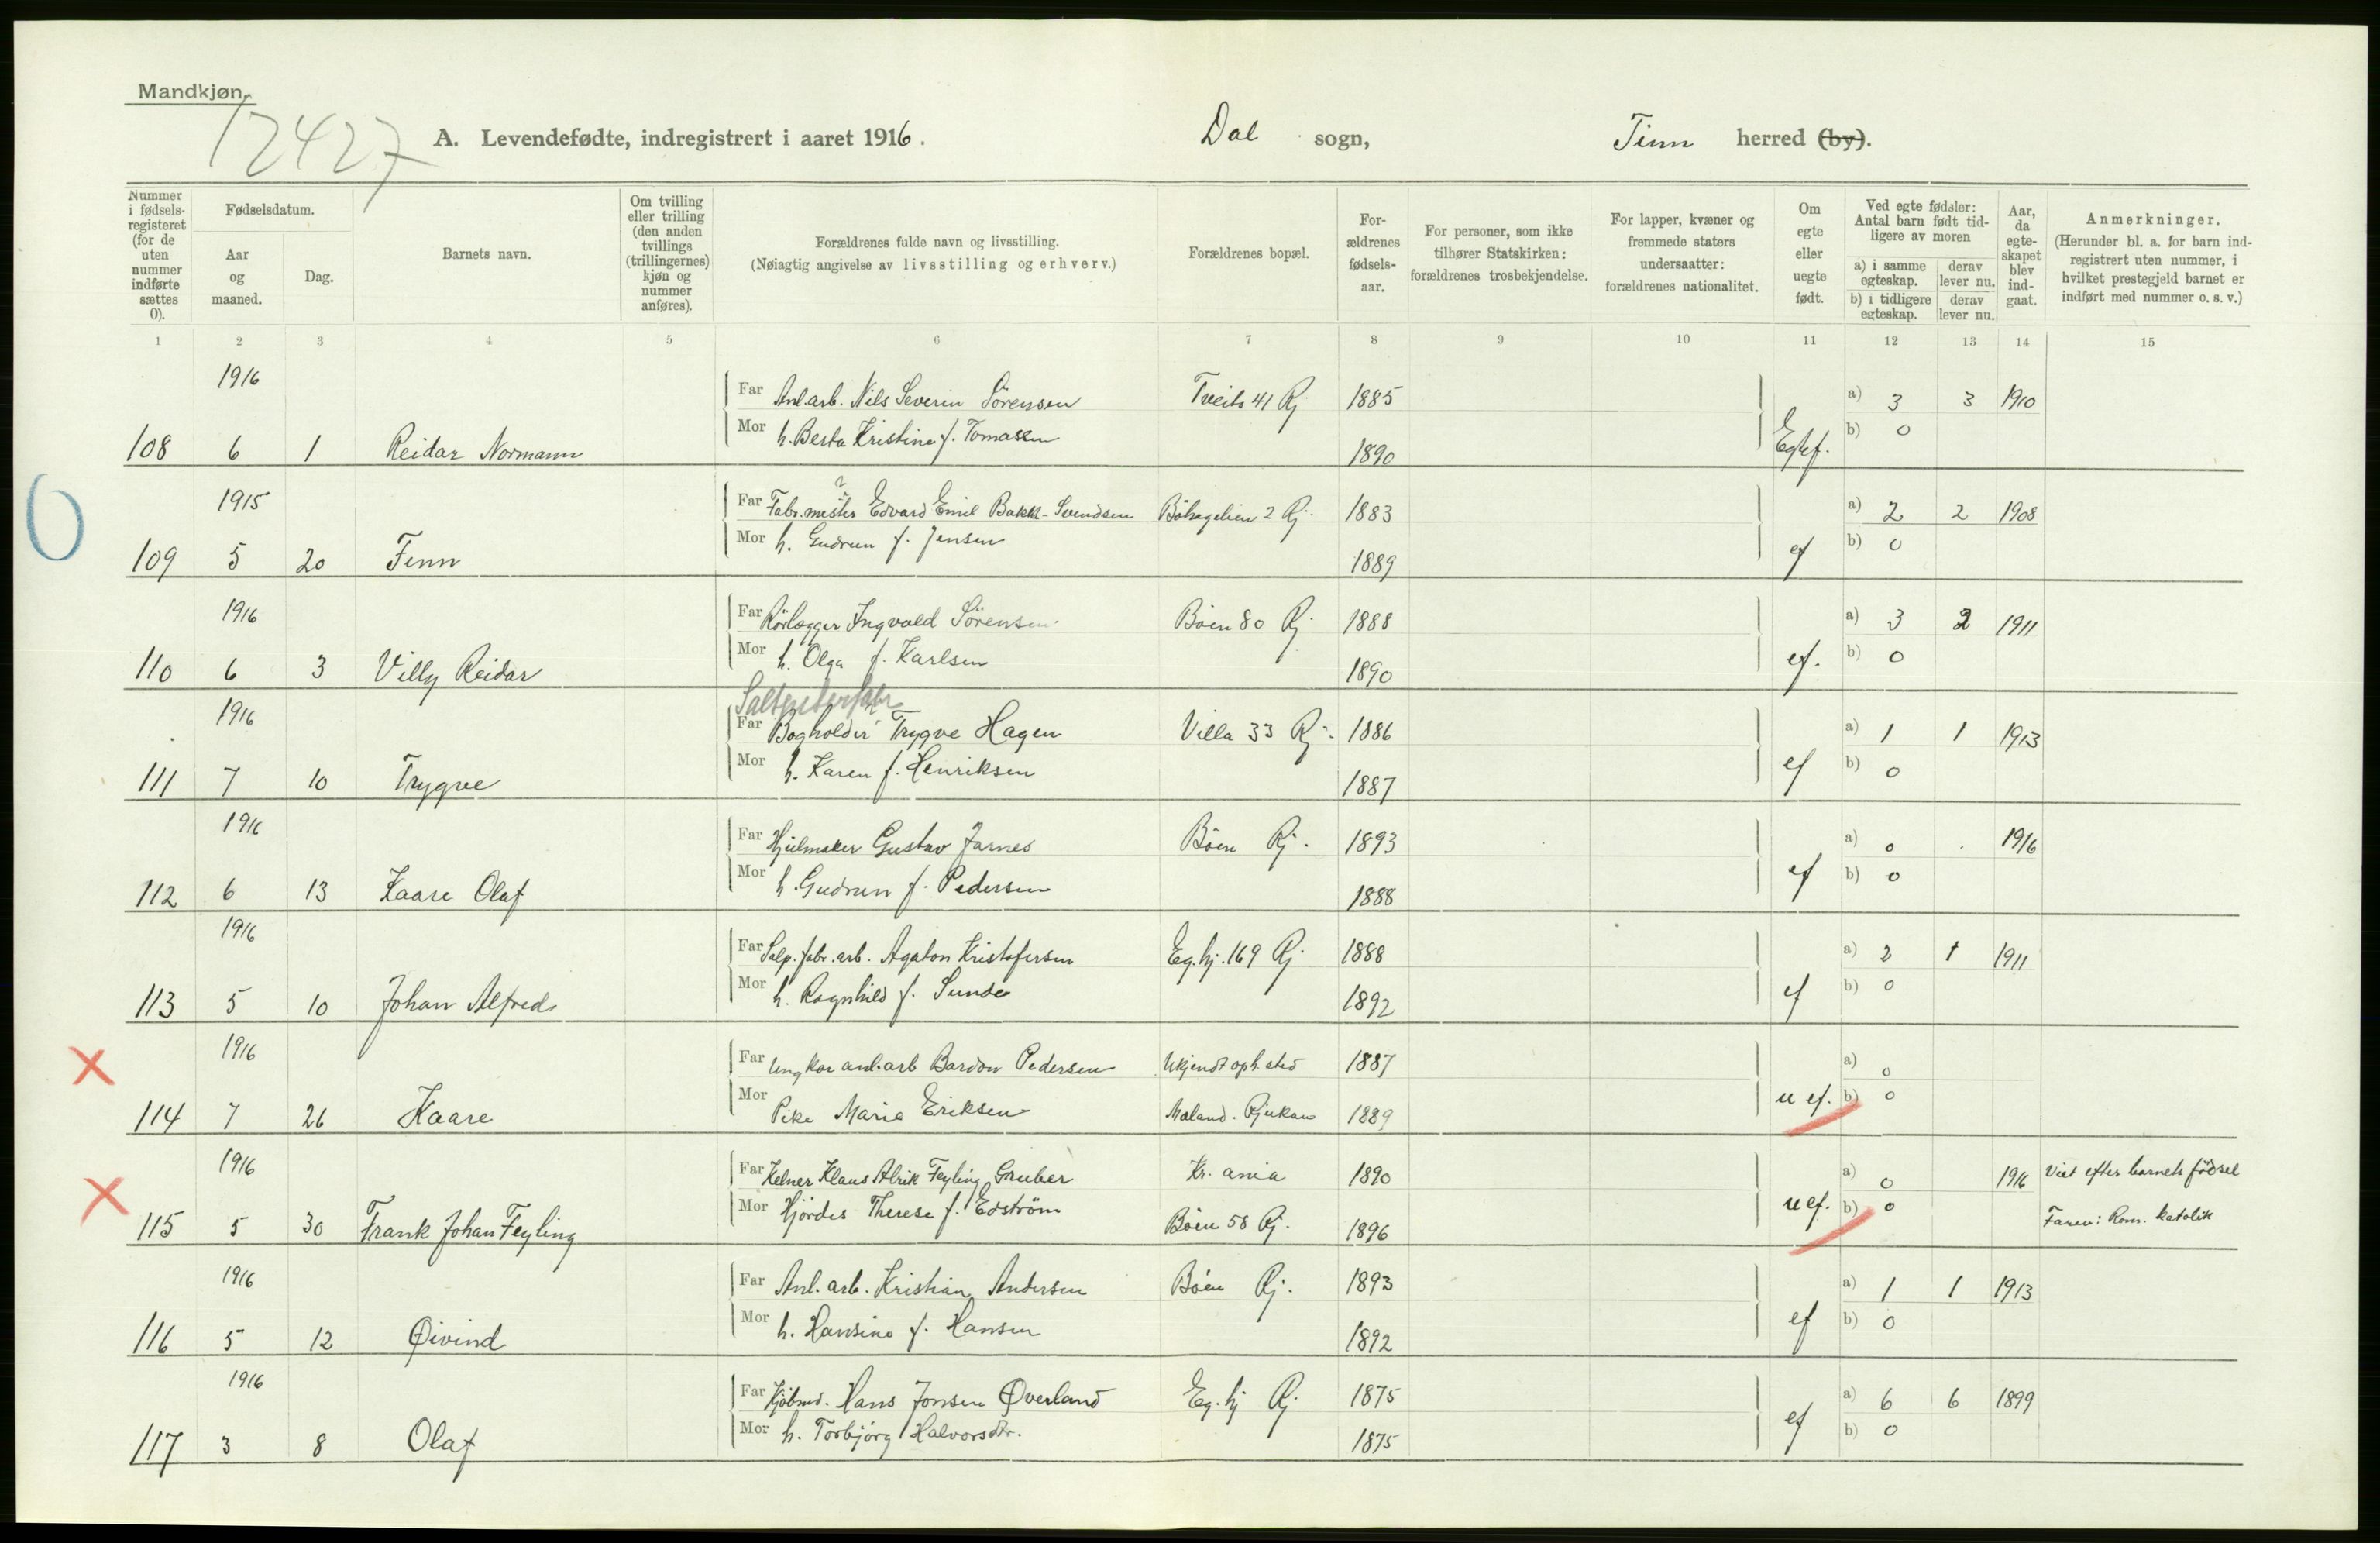 Mandkjøn.
12427
A. Levendefødte, indregistrert i aaret 1916. Dal sogn, Tinn herred (by).
Nummer i fødsels-registeret (for de uten nummer indførte sættes 0).
Fødselsdatum.
Aar og maaned.
Dag.
Barnets navn.
Om tvilling eller trilling (den anden tvillings (trillingernes) kjøn og nummer anføres).
Forældrenes fulde navn og livsstilling.
(Nøiagtig angivelse av livsstilling og erhverv.)
Forældrenes bopæl.
For-ældrenes fødsels-aar.
For personer, som ikke tilhører Statskirken: forældrenes trosbekjendelse.
For lapper, kvæner og fremmede staters undersaatter: forældrenes nationalitet.
Om egte eller uegte født.
Ved egte fødsler: Antal barn født tid-ligere av moren
a) i samme egteskap.
derav lever nu.
b) i tidligere egteskap.
derav lever nu.
Aar, da egte-skapet blev ind-gaat.
Anmerkninger.
(Herunder bl. a. for barn ind-registrert uten nummer, i hvilket prestegjeld barnet er indført med nummer o. s. v.)
1 2 3 4 5 6 7 8 9 10 11 12 13 14 15
1916 Far Anl.arb. Nils Severin Sörensen Tveito 41 Rj 1885 a) 3 3 1910
108 6 1 Reidar Normann Mor h. Berta Kristine f. Tomassen 1890 Egtef. b) 0
1915 Far Fabr.mester Edvard Emil Bakke-Svendsen 2 Rj. 1883 a) 2 2 1908
0
109 5 20 Finn Mor h. Gudrun f. Jensen 1889 ef b) 0
1916 Far Rörlægger Ingvald Sörensen Böen 80 Rj 1888 a) 3 2 1911
110 6 3 Villy Reidar Mor h. Olga f. Karlsen 1890 ef. b) 0
Saltpeterfabr
1916 Far Bogholder Trygve Hagen Villa 33 Rj. 1886 a) 1 1 1913
111 7 10 Trygve Mor h. Karen f. Henriksen 1887 ef b) 0
1916 Far Hjulmaker Gustav Jarnes Böen Rj. 1893 a) 0 . 1916
112 6 13 Kaare Olaf Mor h. Gudrun f. Pedersen 1888 ef b) 0
1916 Far Salp. fabr. arb. Agaton Kristofersen Eg.hj. 169 Rj 1888 a) 2 1 1911
113 5 10 Johan Alfred Mor h. Ragnhild f. Sunde 1892 ef b) 0
1916 Far Ungkar anl.arb Bardon Pedersen Ukjendt oph.sted 1887 a) 0
114 7 26 Kaare Mor Pike Marie Eriksen Mæland. Rjukan 1889 u ef. b) 0
1916 Far Kelner Klaus Alrik Feyling Gruber Kr. ania 1890 a) 0 1916 Viet efter barnets födsel
115 5 30 Frank Johan Feyling Mor Hjördis Therese f. Edström Böen 58 Rj. 1896 u ef. b) 0 Faren: Rom. katolik
1916 Far Anl. arb. Kristian Andersen Böen Rj. 1893 a) 1 1 1913
116 5 12 Øivind Mor h. Hansine f. Hansen 1892 ef b) 0
1916 Far Kjöbmd. Hans Jonsen Øverland Eg. hj Rj. 1875 a) 6 6 1899
117 3 8 Olaf Mor h. Torbjörg Halvorsdtr. 1875 ef b) 0